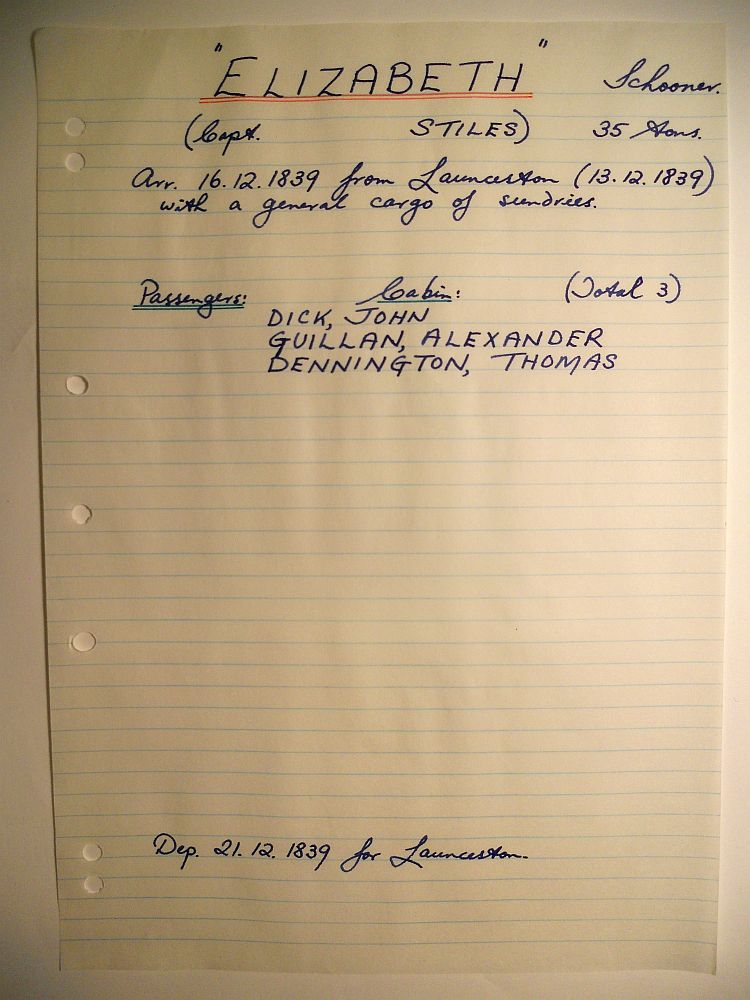 "ELIZABETH" Schooner.
(Capt. STILES) 35 tons.
Arr. 16.12.1839 from Launceston (13.12.1839)
with a general cargo of sundries.
Passengers: Cabin: (Total 3)
DICK, JOHN
GUILLAN, ALEXANDER
DENNINGTON, THOMAS
Dep. 21.12.1839 for Launceston.